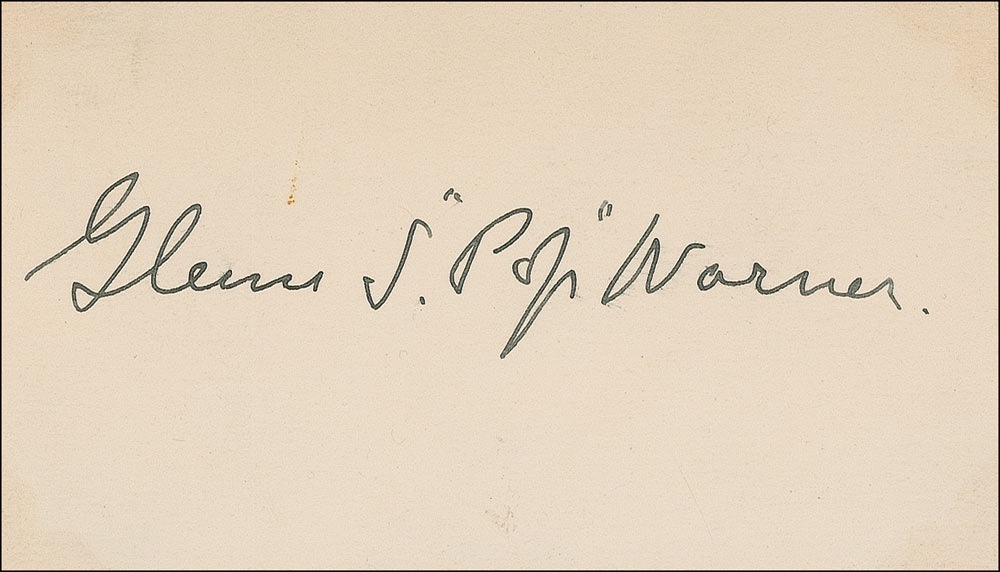 Glenn S. "Pop" Warner.